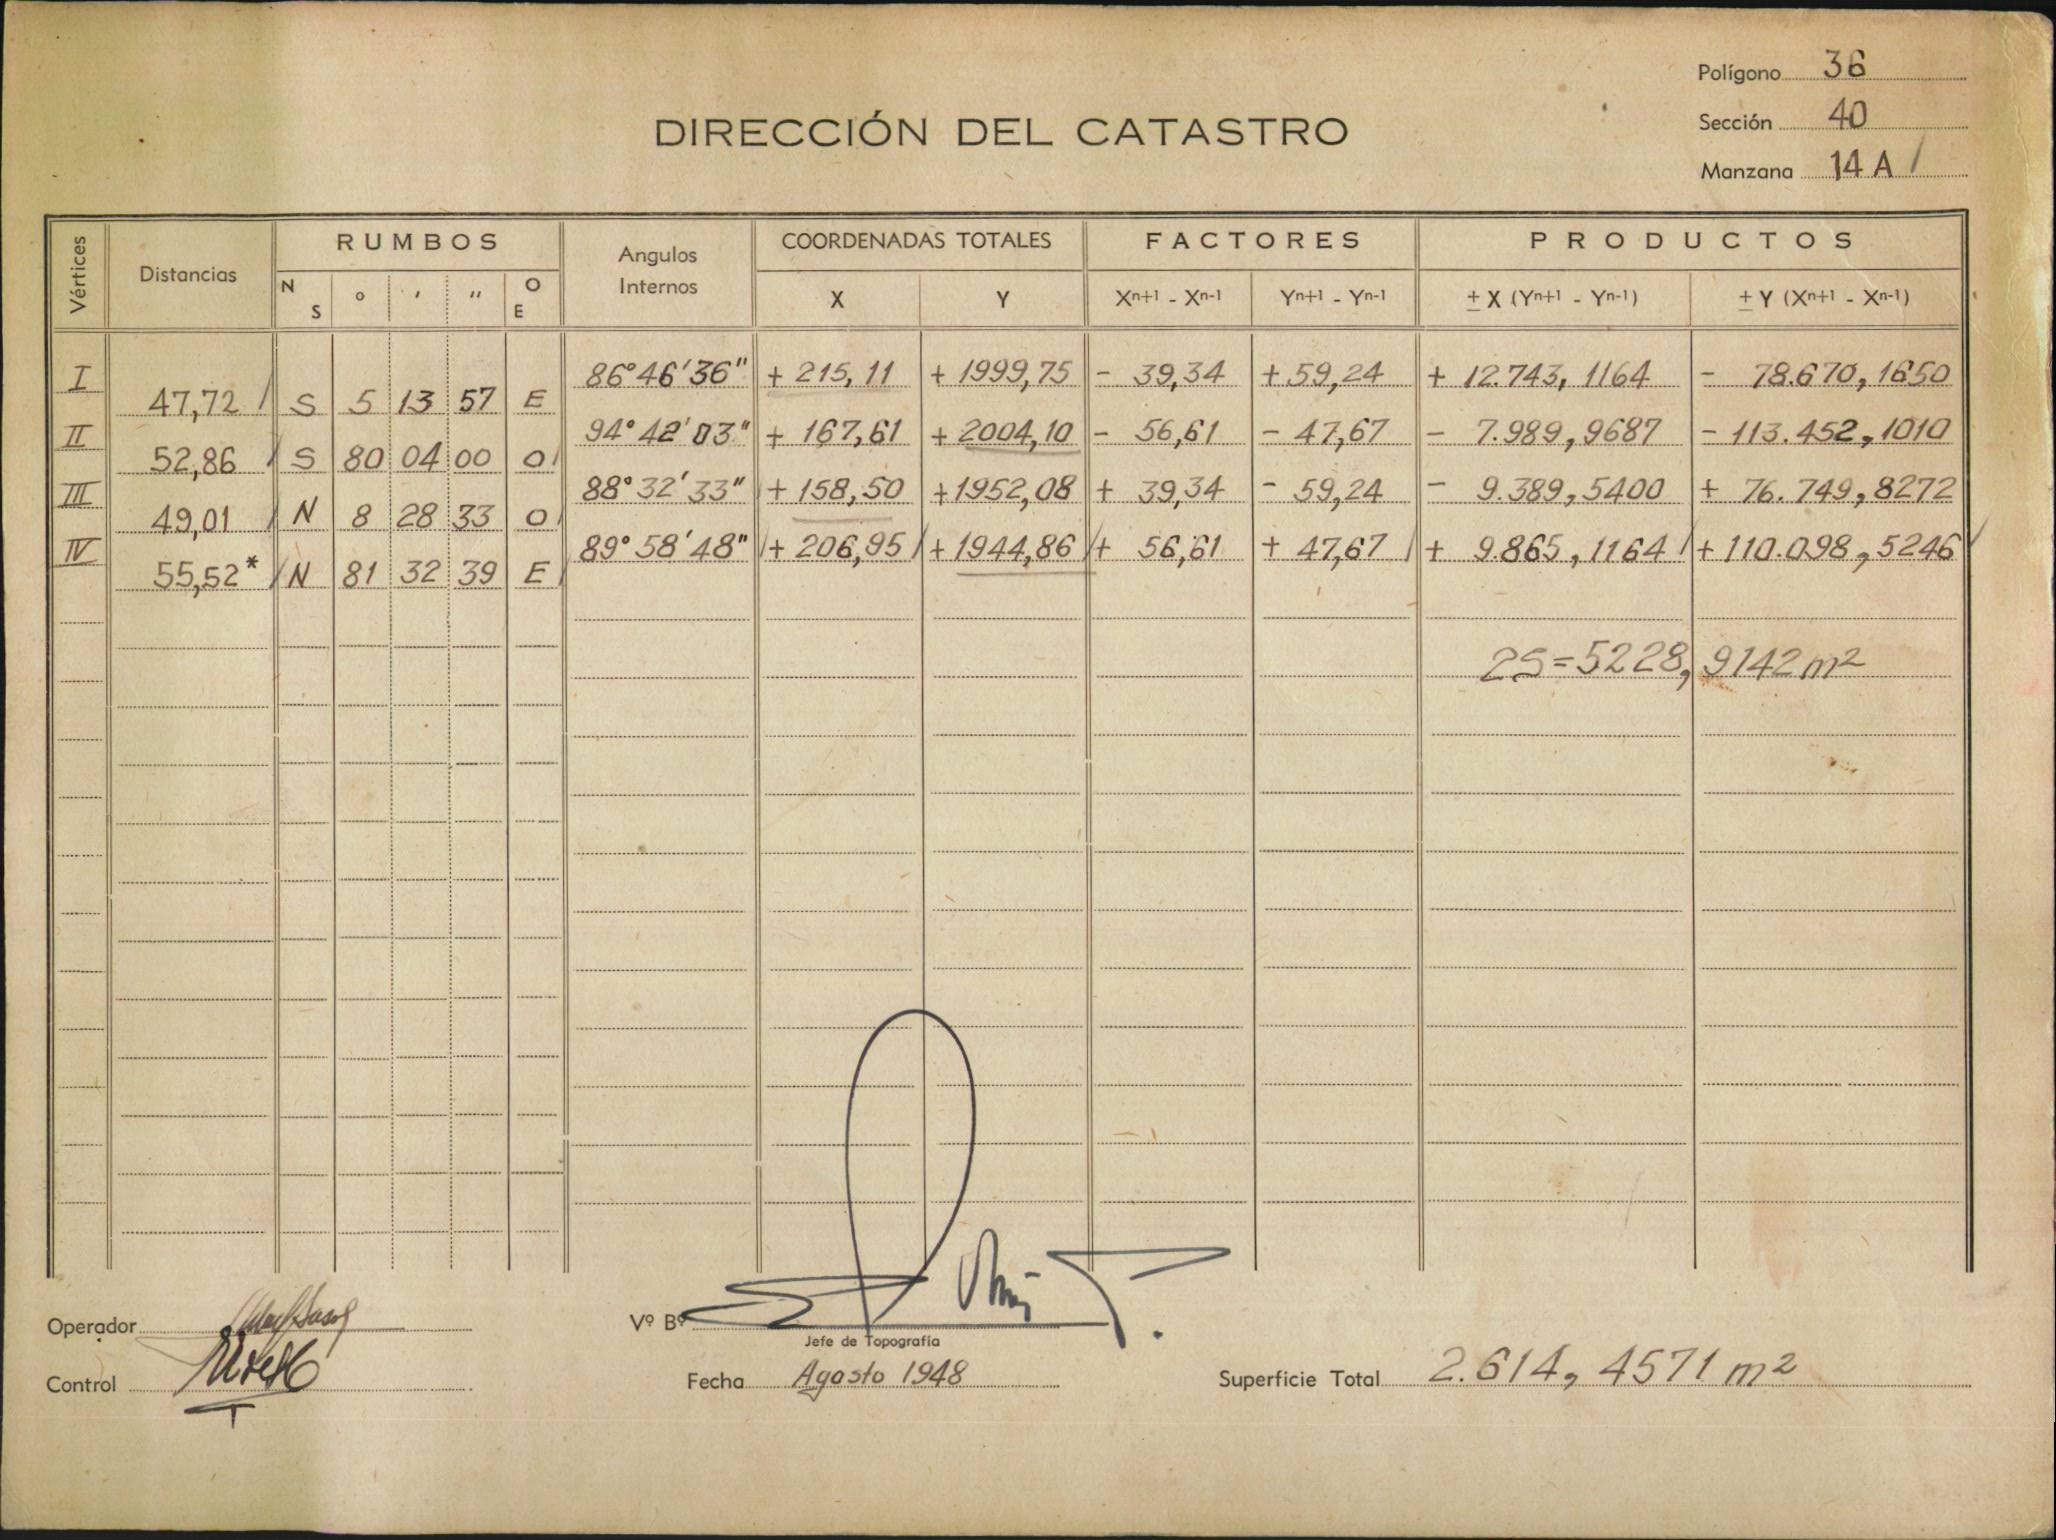 Polígono 36
DIRECCIÓN DEL CATASTRO
Sección 40
Manzana 14 A /
Vértices
Distancias
RUMBOS
N S ° ' " O E
Angulos Internos
COORDENADAS TOTALES
X Y
FACTORES
Xn+1 - Xn-1 Yn+1 - Yn-1
PRODUCTOS
± X (Yn+1 - Yn-1) ± Y (Xn+1 - Xn-1)
I 86°46'36" + 215,11 + 1999,75 - 39,34 + 59,24 + 12.743,1164 - 78.670,1650
47,72 / S 5 13 57 E
II 94°42'03" + 167,61 + 2004,10 - 56,61 - 47,67 - 7.989,9687 - 113.452,1010
52,86 / S 80 04 00 O /
III 88°32'33" + 158,50 + 1952,08 + 39,34 - 59,24 - 9.389,5400 + 76.749,8272
49,01 / N 8 28 33 O /
IV 89°58'48" / + 206,95 / + 1944,86 / + 56,61 + 47,67 / + 9.865,1164 / + 110.098,5246 /
55,52* / N 81 32 39 E /
2S=5228,9142 m2
Operador
Vº Bº
Jefe de Topografía
Control
Fecha Agosto 1948
Superficie Total 2.614,4571 m2